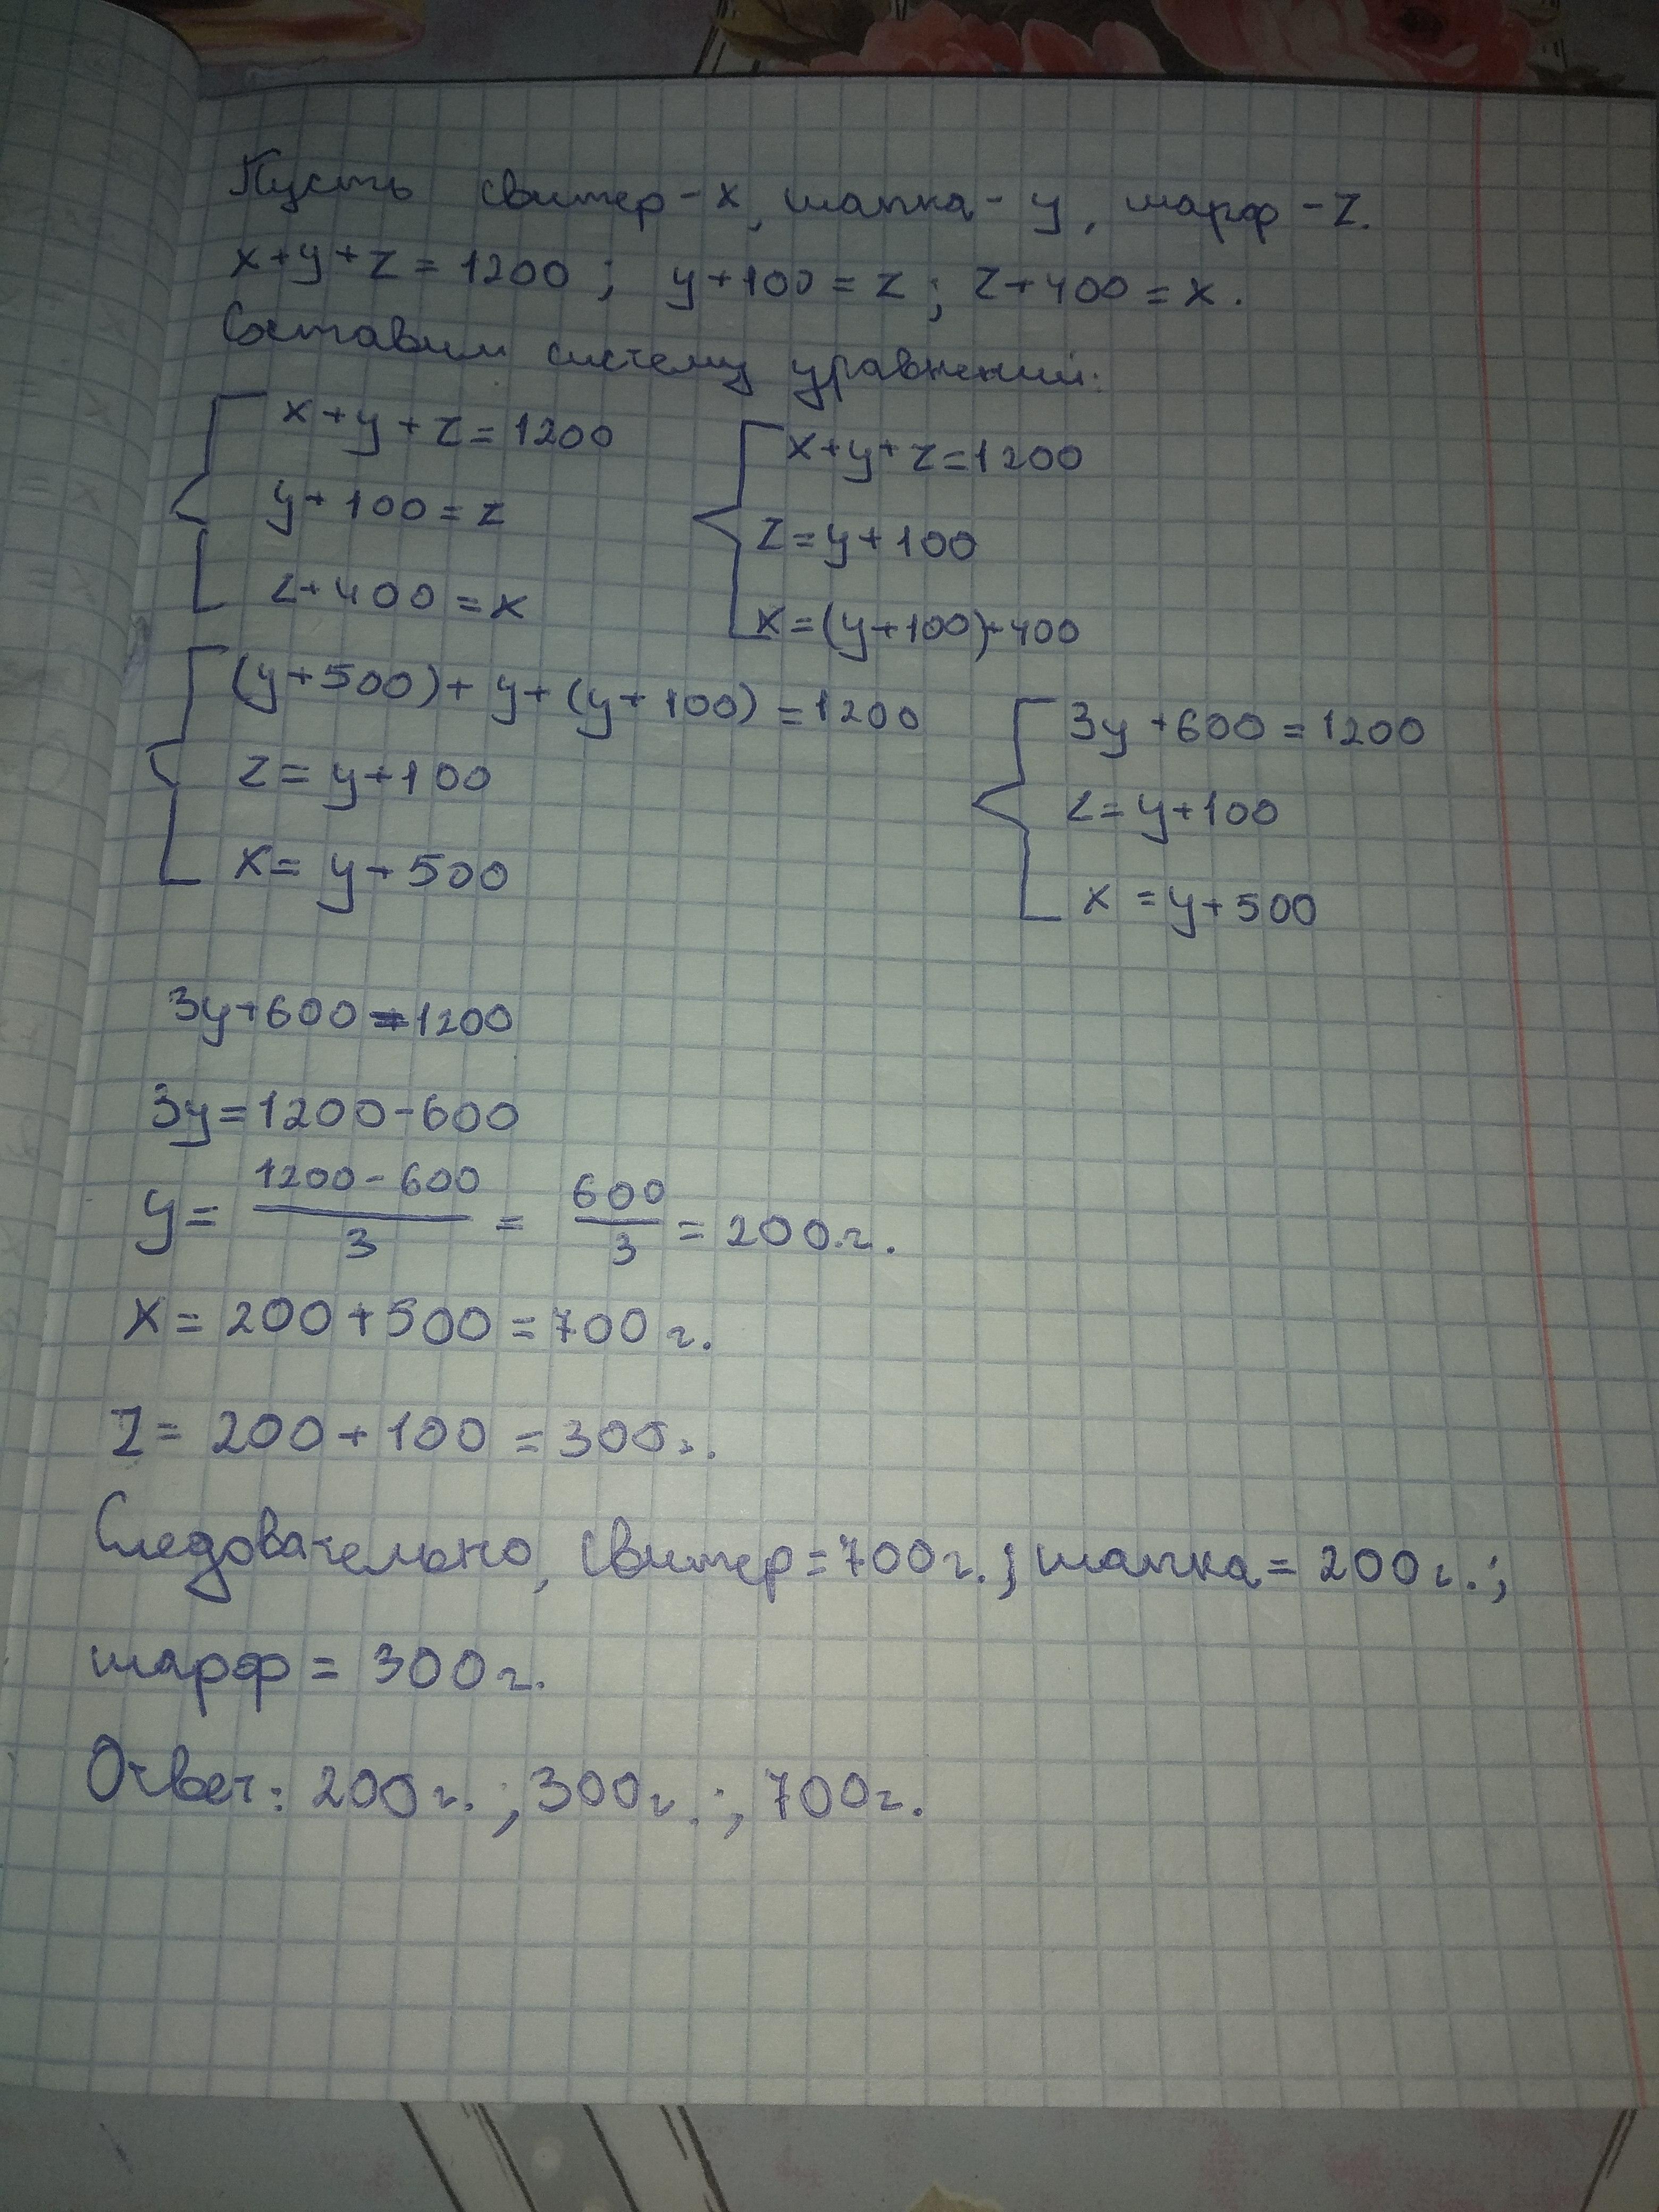 Пусть свитер - x, шапка - y, шарф - z.
x+y+z=1200; y+100=z; z+400=x.
Составим систему уравнений:
x+y+z=1200
y+100=z
z+400=x
x+y+z=1200
z=y+100
x=(y+100)+400
(y+500)+y+(y+100)=1200
z=y+100
x=y+500
3y+600=1200
z=y+100
x=y+500
3y+600=1200
3y=1200-600
y= 1200-600/3 = 600/3 =200г.
x=200+500=700г.
z=200+100=300г.
Следовательно, свитер=700г.; шапка=200г.;
шарф=300г.
Ответ: 200г.; 300г.; 700г.